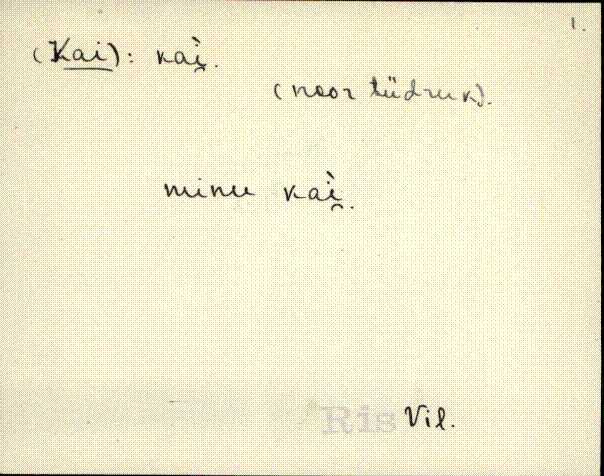 1.
(Kai): kaì̯.
(noor tüdruk).
minu kaì̯.
Ris Vil.